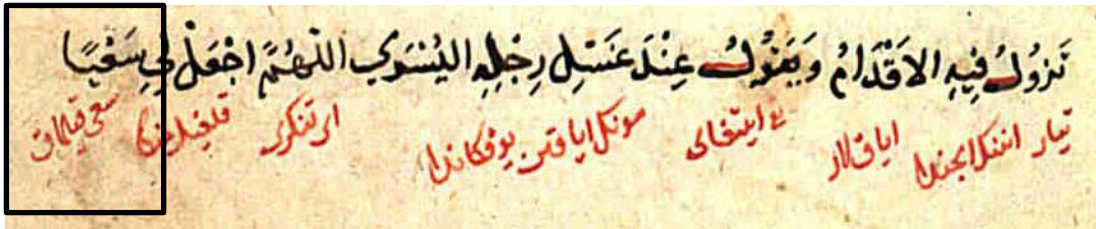 تَزُوْلُ فِيْهِ الْاَقْدَامُ وَيَقُوْلُ عِنْدَ غَسْلِ رِجْلِهِ الْيُسْرَي اَللّٰهُمَّ اجْعَلْ لِي سَعْيًا
تيار اننك ايجندا اياقلار ايتغاى سونكل اياقن يوفكاندا اى تنكرى قلغيل سعى قيلماق